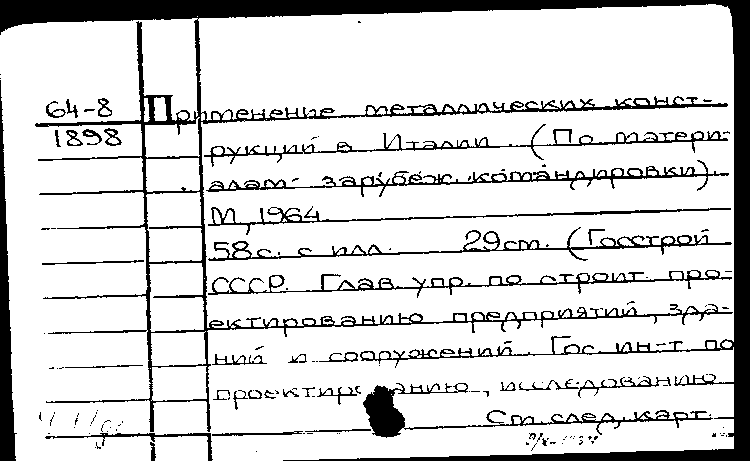 64-8
1898
Применение металлических конст-
рукций в Италии. (По матери-
алам зарубеж. командировки).
М, 1964.
58с. с илл. 29см. (Госстрой
СССР. Глав. упр. по строит. про-
ектированию предприятий, зда-
ний и сооружений. Гос. ин-т по
проектированию, исследованию
См. след. карт.